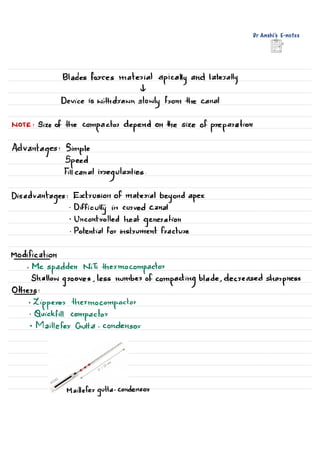 Dr Anshi's E-notes
Blades forces material apically and laterally
↓
Device is withdrawn slowly from the canal
NOTE: Size of the compactor depend on the size of preparation
Advantages: Simple
Speed
Fill canal irregularities
Disadvantages: Extrusion of material beyond apex
· Difficulty in curved canal
· Uncontrolled heat generation
· Potential for instrument fracture
Modification
· Mc spadden NiTi thermocompactor
Shallow grooves, less number of compacting blade, decreased sharpness
Others:
· Zipperer thermocompactor
· Quickfill compactor
· Maillefer Gutta-condensor
Maillefer gutta-condensor